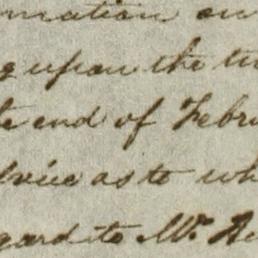 mation on
g upon the
e end of Febru
dvice as to wh
gard to Mr.